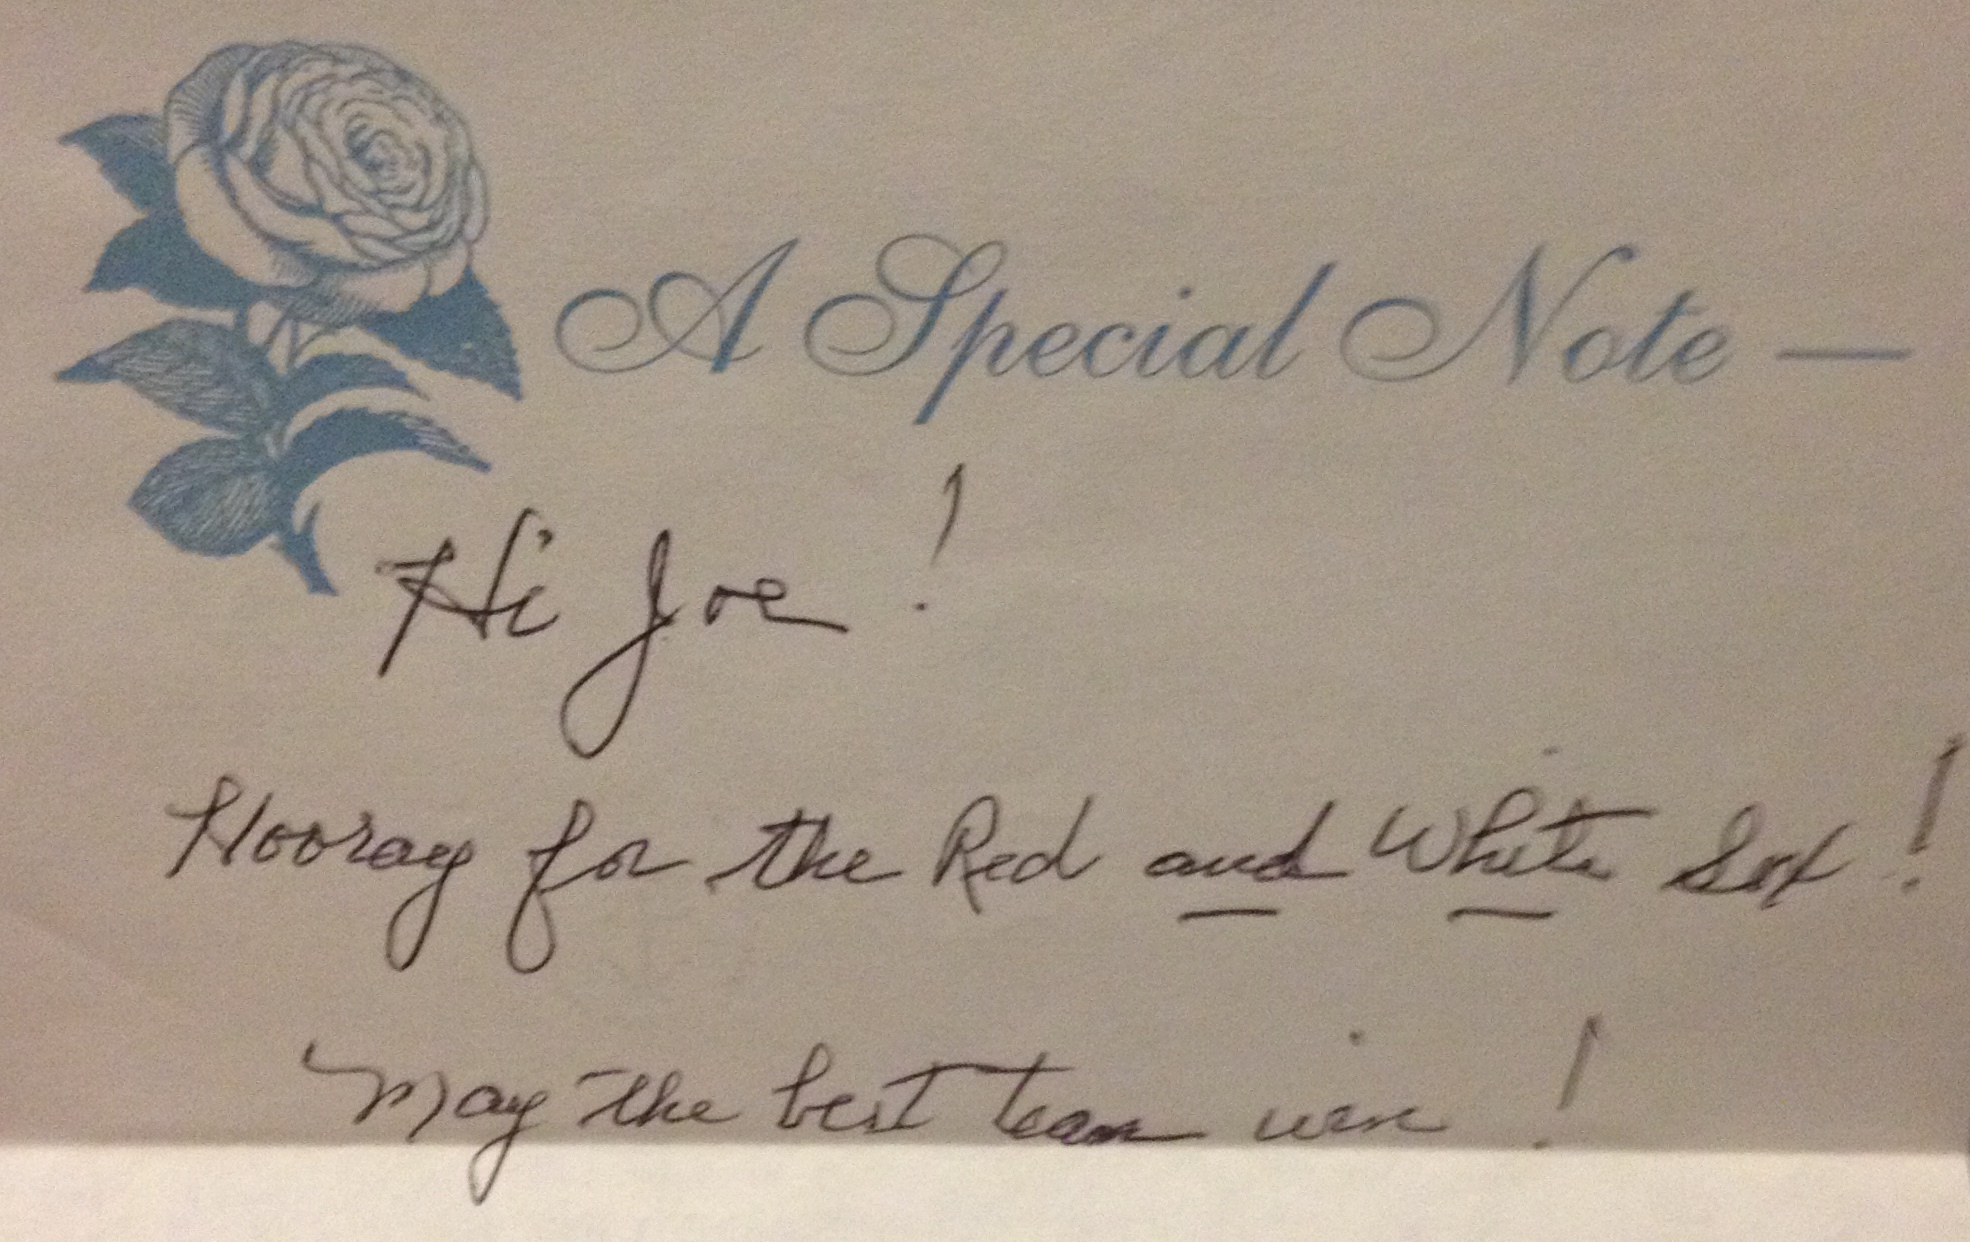 A Special Note —
Hi Joe!
Hooray for the Red and White Sox!
May the best team win!